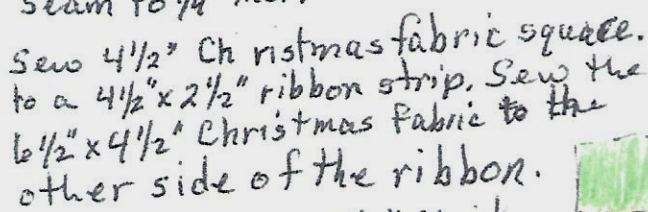 seam to 1/4"
Sew 4 1/2" Christmas fabric square.
to a 4 1/2" x 2 1/2" ribbon strip. Sew the
6 1/2" x 4 1/2" Christmas Fabric to the
other side of the ribbon.